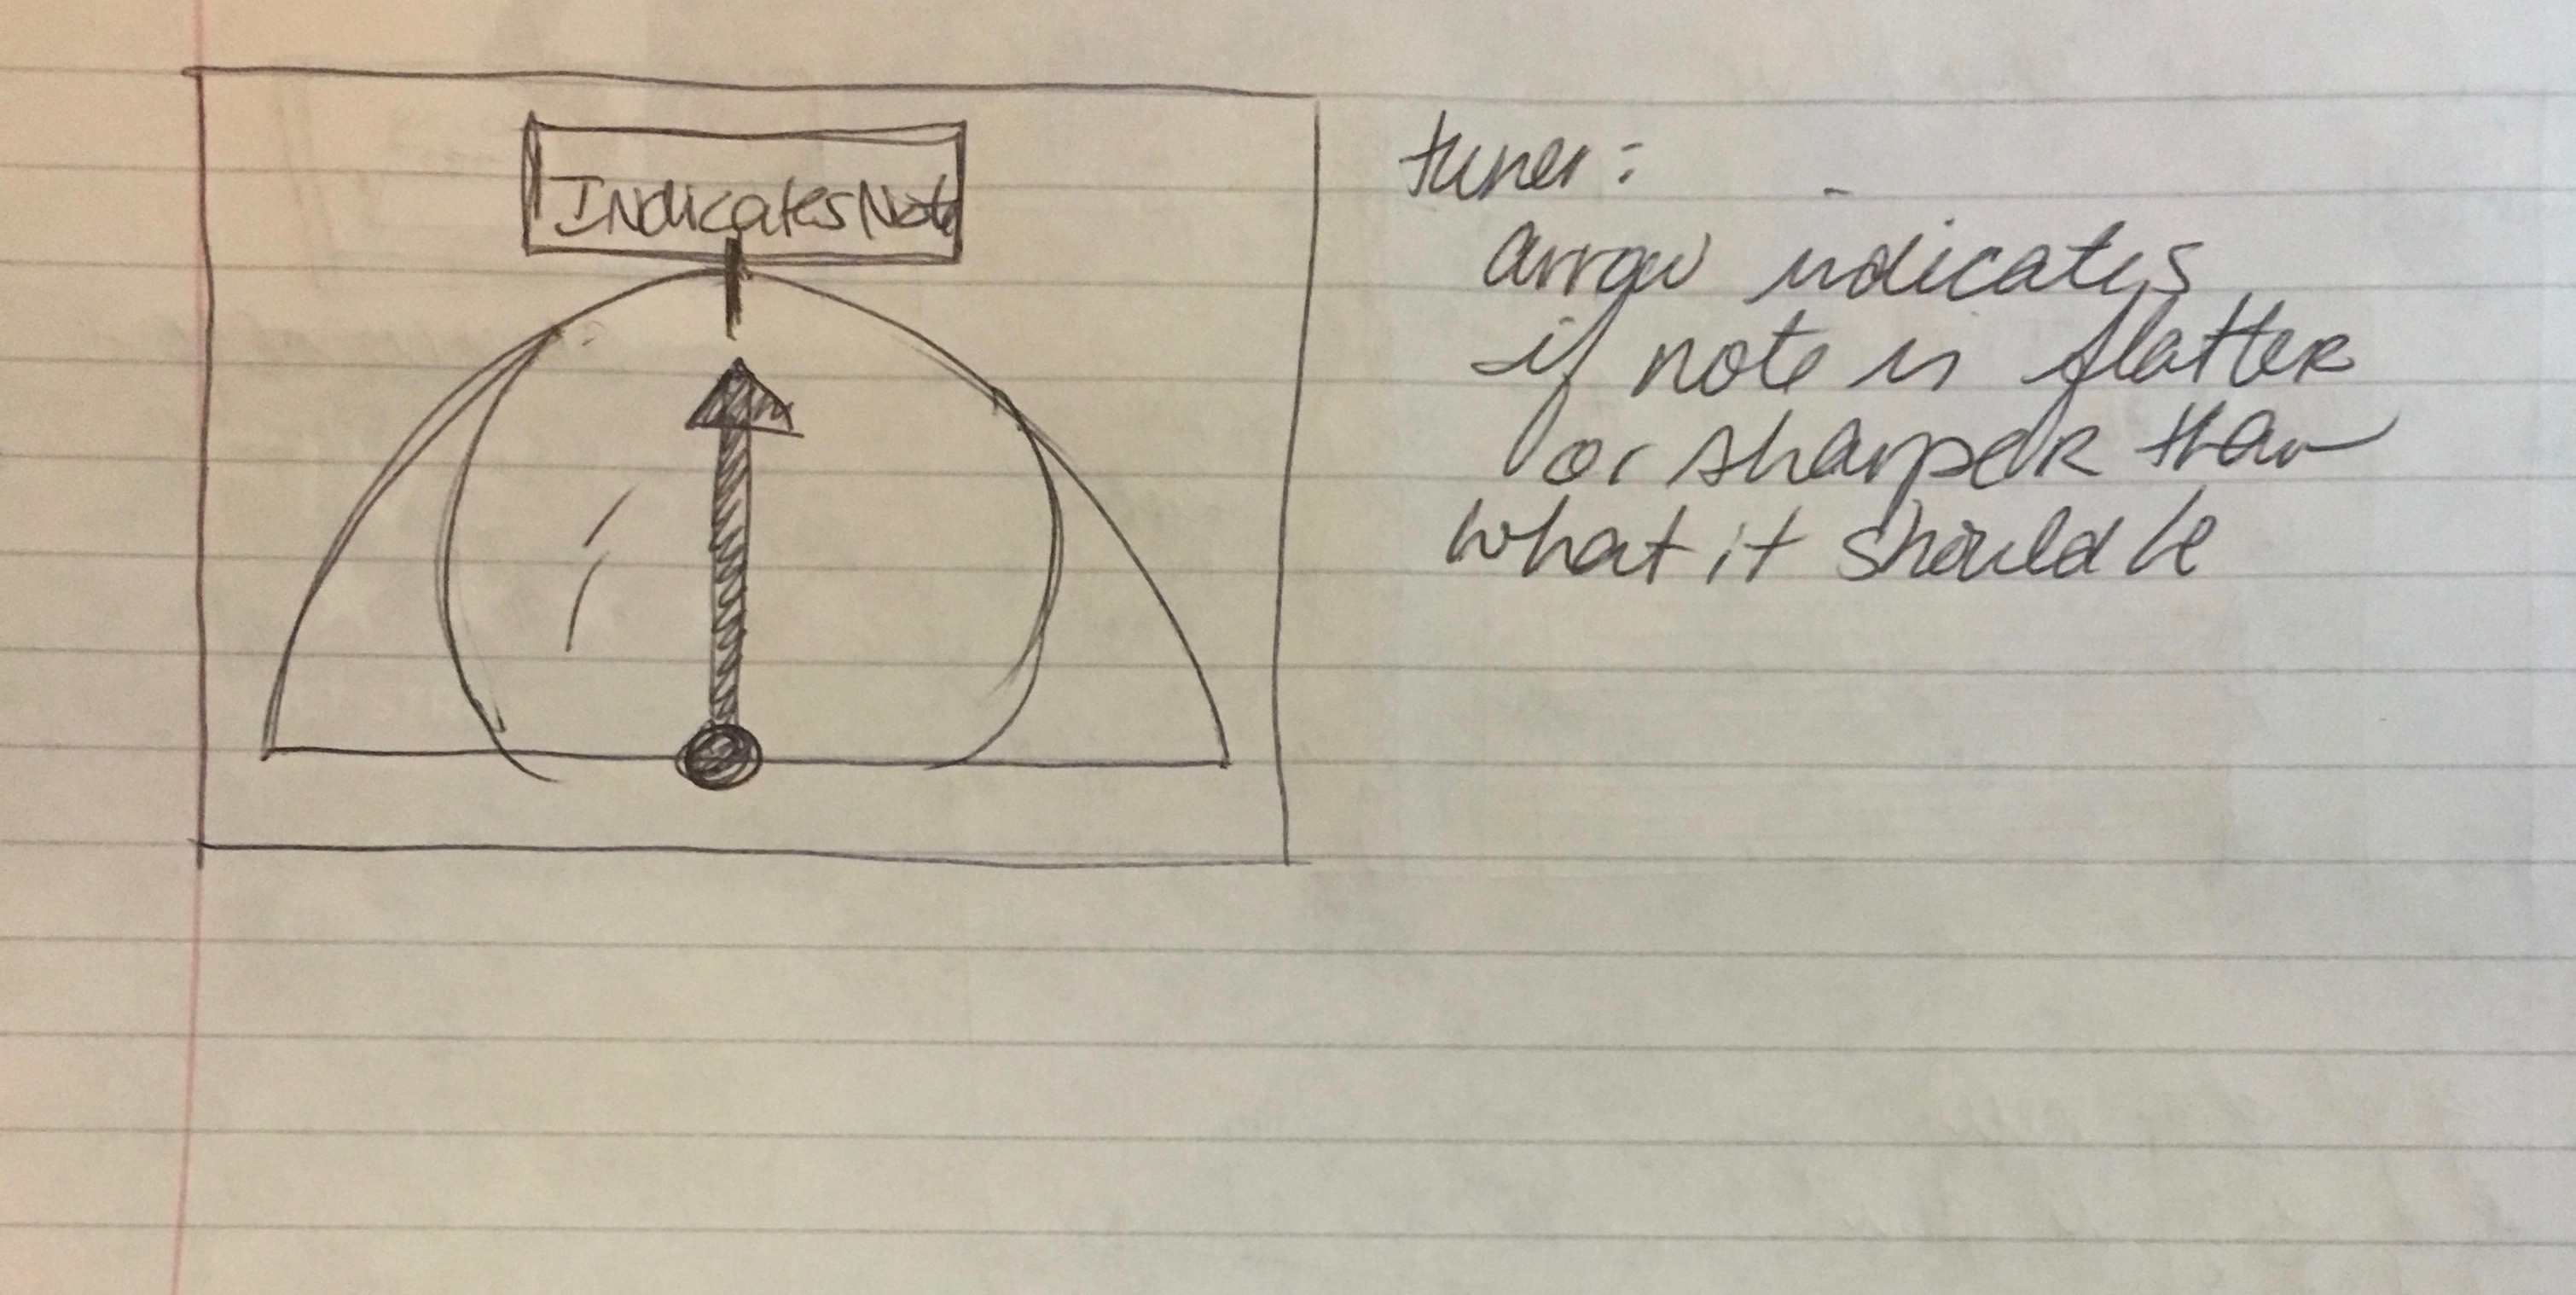 Indicates Note
tuner:
arrow indicates
if note is flatter
or sharper than
what it should be